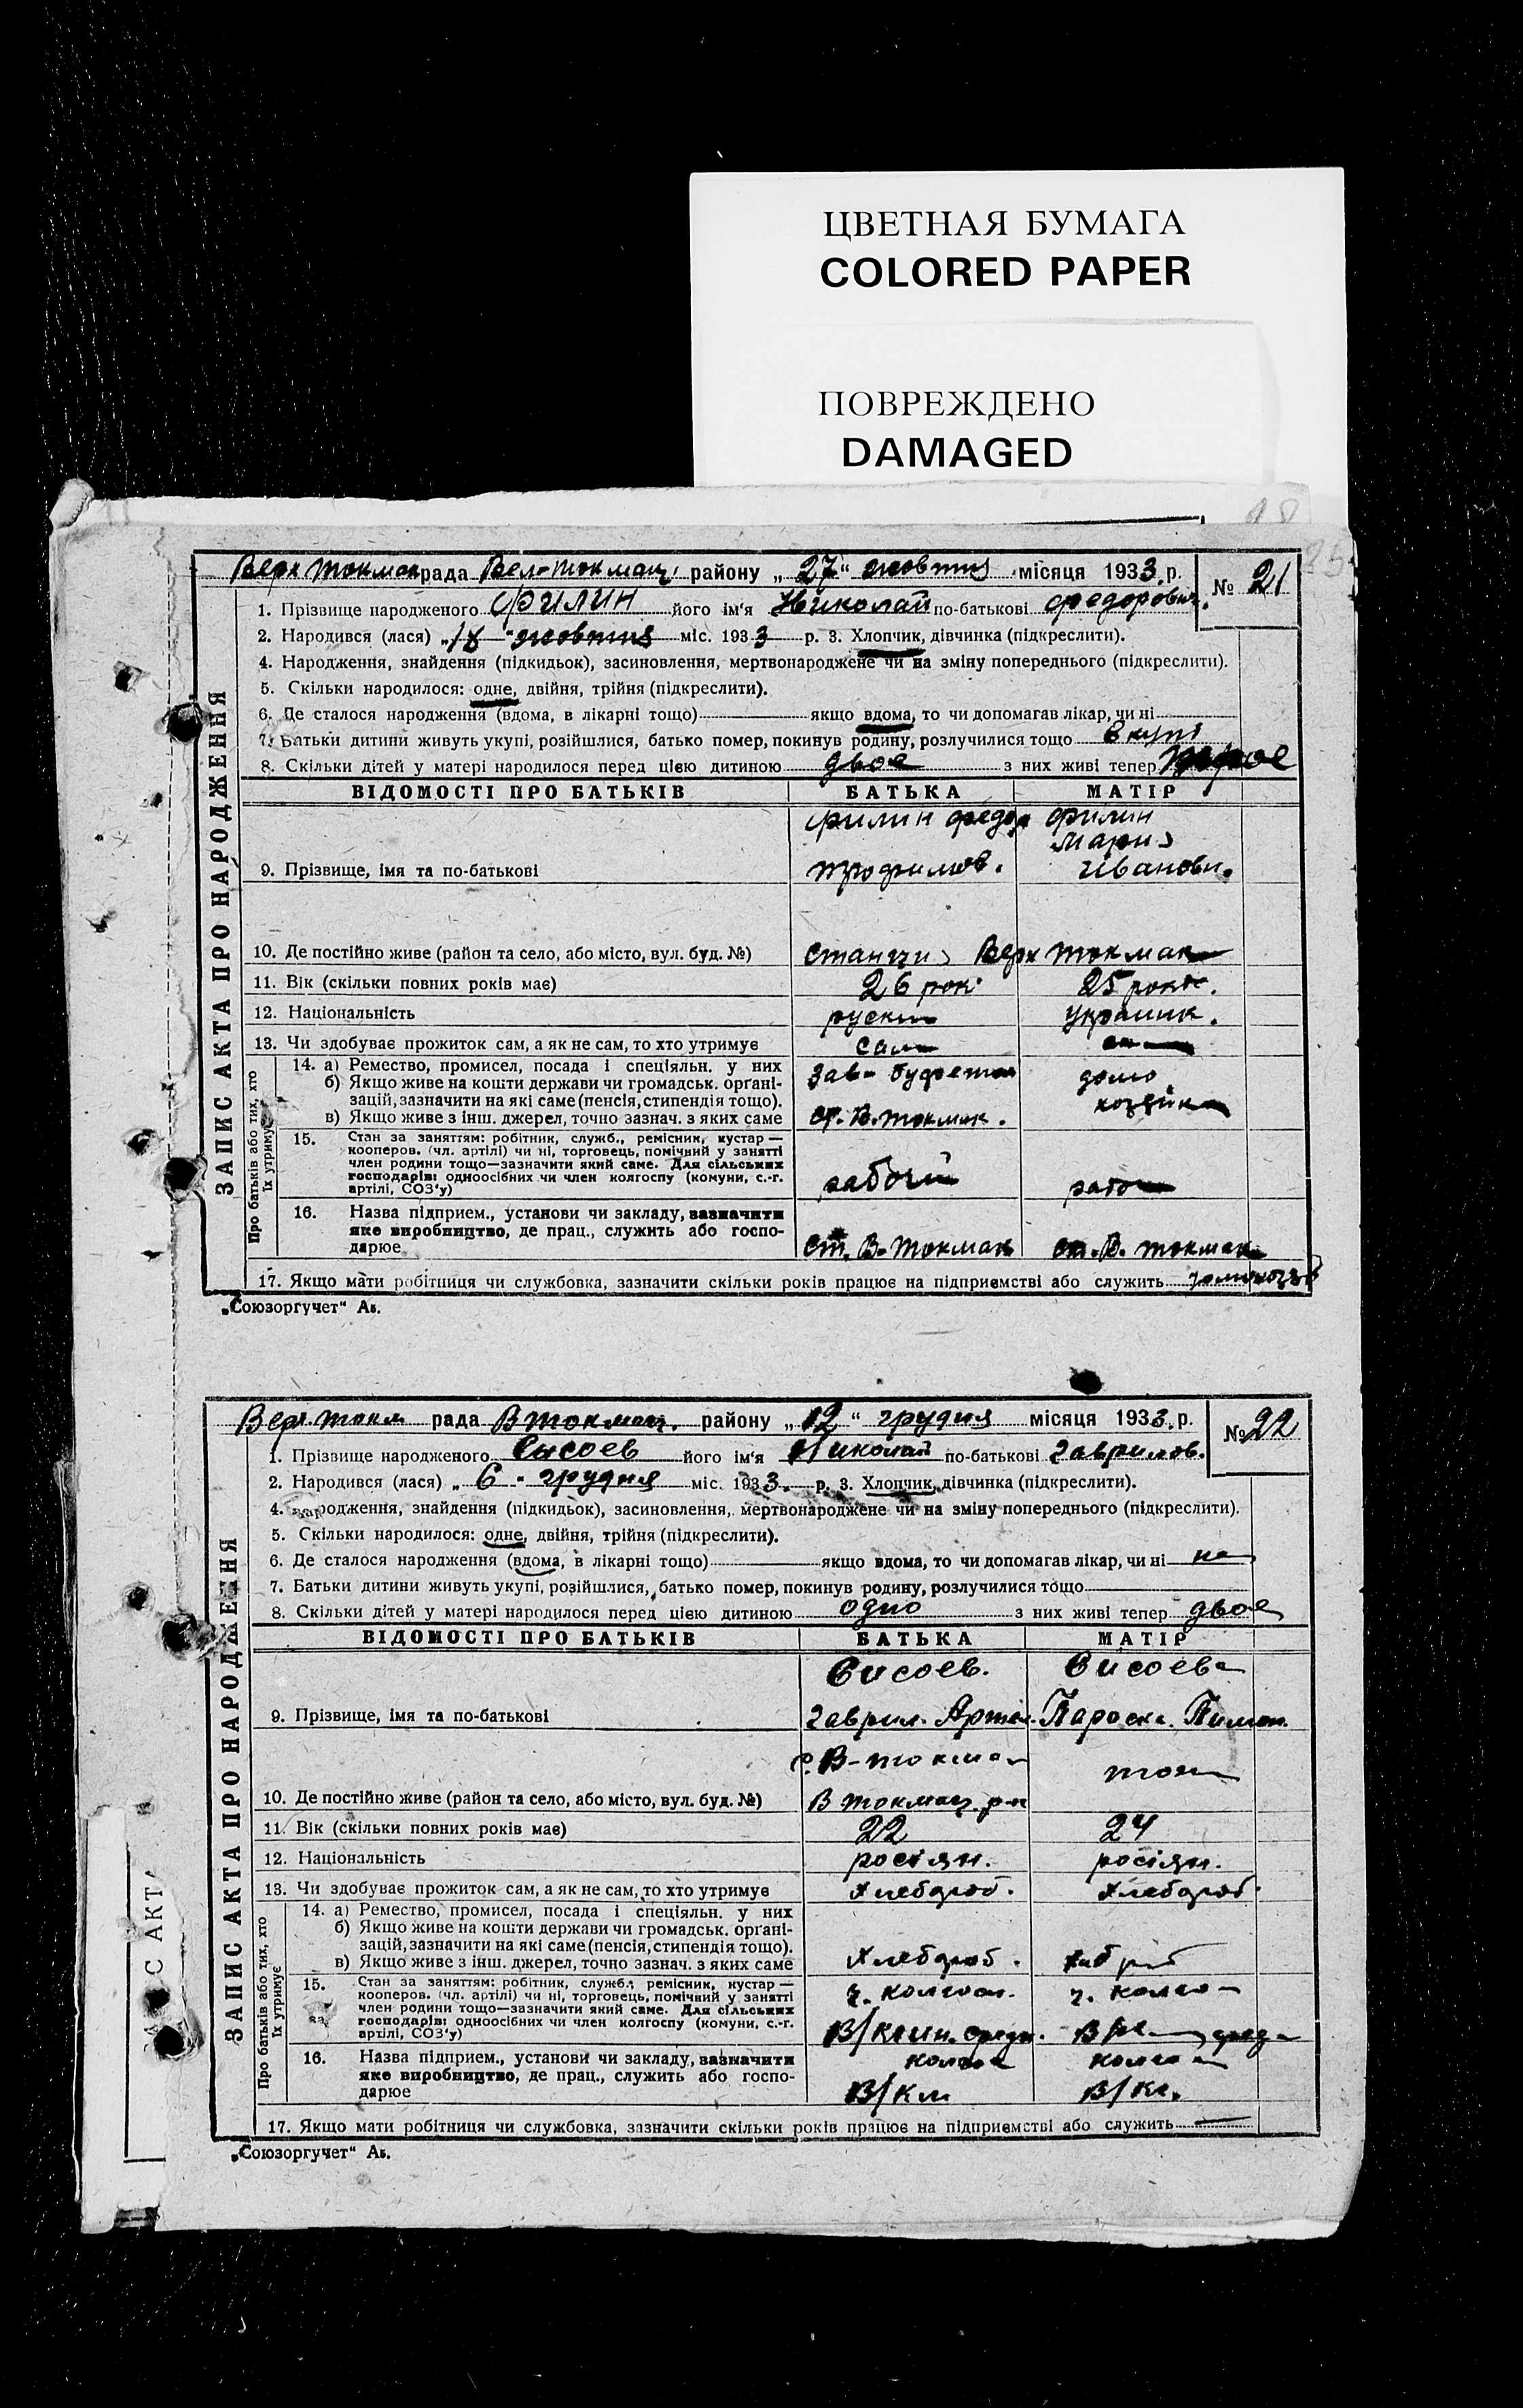 ЦВЕТНАЯ БУМАГА
COLORED PAPER
ПОВРЕЖДЕНО
DAMAGED
Верх Токмак рада Вел-Токмац. району „27“ жовтня місяця 1933.р. № 21
1. Прізвище народженого Филин його ім'я Николай по-батькові Федорович.
2. Народився (лася) „18 “ жовтня міс. 1933 р. 3. Хлопчик, дівчинка (підкреслити).
4. Народження, знайдення (підкидьок), засиновлення, мертвонароджене чи на зміну попереднього (підкреслити).
5. Скільки народилося: одне, двійня, трійня (підкреслити).
6. Де сталося народження (вдома, в лікарні тощо) якщо вдома, то чи допомагав лікар, чи ні
7. Батьки дитини живуть укупі, розійшлися, батько помер, покинув родину, розлучилися тощо вкупі
8. Скільки дітей у матері народилося перед цією дитиною двое з них живі тепер трое
ВІДОМОСТІ ПРО БАТЬКІВ БАТЬКА МАТІР
Филин Федор Филин
Мария
9. Прізвище, імя та по-батькові Трофимов. Ивановн.
10. Де постійно живе (район та село, або місто, вул. буд. №) Станция Верх Токмак
11. Вік (скільки повних років має) 26 рок. 25 рокв.
12. Національність руский украинк.
13. Чи здобуває прожиток сам, а як не сам, то хто утримує сам
14. а) Ремество, промисел, посада і спеціяльн. у них Зав. буфетом домо
б) Якщо живе на кошти держави чи громадськ. органі-
зацій, зазначити на які саме (пенсія, стипендія тощо). хозяйка
в) Якщо живе з інш. джерел, точно зазнач. з яких саме ст. В. Токмак.
15. Стан за заняттям: робітник, служб., ремісник, кустар —
кооперов. (чл. артілі) чи ні, торговець, помічний у занятті
член родини тощо—зазначити який саме. Для сільських
господарів: одноосібних чи член колгоспу (комуни, с.-г. рабочий
артілі, СОЗ'у)
16. Назва підприєм., установи чи закладу, зазначити
яке виробництво, де прац., служить або госпо-
дарює ст. В. Токмак ст. В. Токмак
17. Якщо мати робітниця чи службовка, зазначити скільки років працює на підприємстві або служить
ЗАПИС АКТА ПРО НАРОДЖЕННЯ
Про батьків або тих, хто
їх утримує
„Союзоргучет“ Ав.
Верх. Токм рада В Токмац. району „12“ грудня місяця 1933.р. № 22
1. Прізвище народженого Сысоев його ім'я Николай по-батькові Гаврилов.
2. Народився (лася) „ 6 “ грудня міс. 1933. р. 3. Хлопчик, дівчинка (підкреслити).
4. Народження, знайдення (підкидьок), засиновлення, мертвонароджене чи на зміну попереднього (підкреслити).
5. Скільки народилося: одне, двійня, трійня (підкреслити).
6. Де сталося народження (вдома, в лікарні тощо) якщо вдома, то чи допомагав лікар, чи ні
7. Батьки дитини живуть укупі, розійшлися, батько помер, покинув родину, розлучилися тощо
8. Скільки дітей у матері народилося перед цією дитиною одно з них живі тепер двое
ВІДОМОСТІ ПРО БАТЬКІВ БАТЬКА МАТІР
Сисоев. Сисоева
9. Прізвище, імя та по-батькові Гаврил. Артем. Параска. Пимон.
с. В-Токмак
10. Де постійно живе (район та село, або місто, вул. буд. №) В Токмац. р-н
11. Вік (скільки повних років має) 22 24
12. Національність росіян. росіян.
13. Чи здобуває прожиток сам, а як не сам, то хто утримує Хлебороб. Хлебороб.
14. а) Ремество, промисел, посада і спеціяльн. у них
б) Якщо живе на кошти держави чи громадськ. органі-
зацій, зазначити на які саме (пенсія, стипендія тощо).
в) Якщо живе з інш. джерел, точно зазнач. з яких саме Хлебороб.
15. Стан за заняттям: робітник, служб., ремісник, кустар —
кооперов. (чл. артілі) чи ні, торговець, помічний у занятті ч. колгосп. ч. колго
член родини тощо—зазначити який саме. Для сільських
господарів: одноосібних чи член колгоспу (комуни, с.-г.
артілі, СОЗ'у)
16. Назва підприєм., установи чи закладу, зазначити
яке виробництво, де прац., служить або госпо-
дарює
17. Якщо мати робітниця чи службовка, зазначити скільки років працює на підприємстві або служить
ЗАПИС АКТА ПРО НАРОДЖЕННЯ
Про батьків або тих, хто
їх утримує
„Союзоргучет“ Ав.